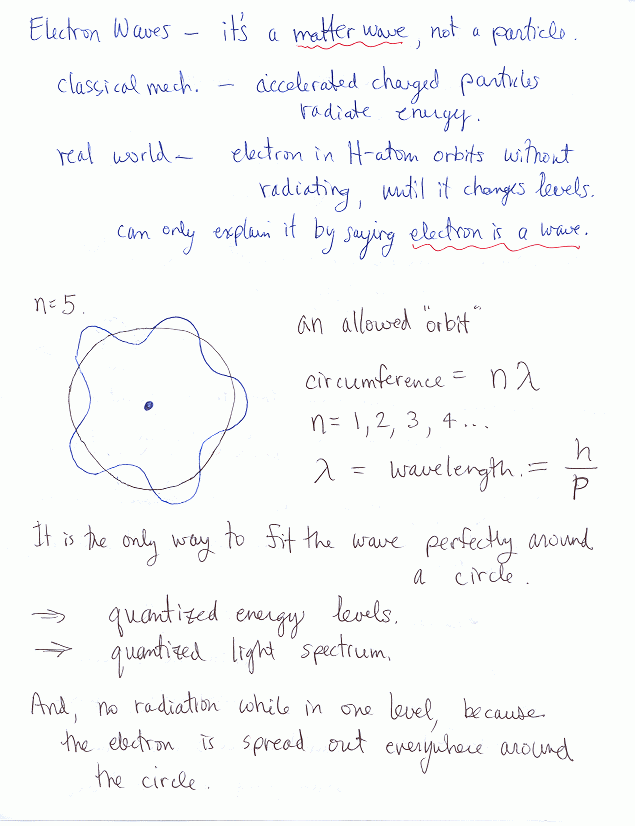 Electron Waves – it's a matter wave, not a particle.
classical mech. – accelerated charged particles
radiate energy.
real world – electron in H-atom orbits without
radiating, until it changes levels.
can only explain it by saying electron is a wave.
n=5.
an allowed "orbit"
circumference = nλ
n= 1, 2, 3, 4...
λ = wavelength. = h/p
It is the only way to fit the wave perfectly around
a circle.
⇒ quantized energy levels.
⇒ quantized light spectrum.
And, no radiation while in one level, because
the electron is spread out everywhere around
the circle.